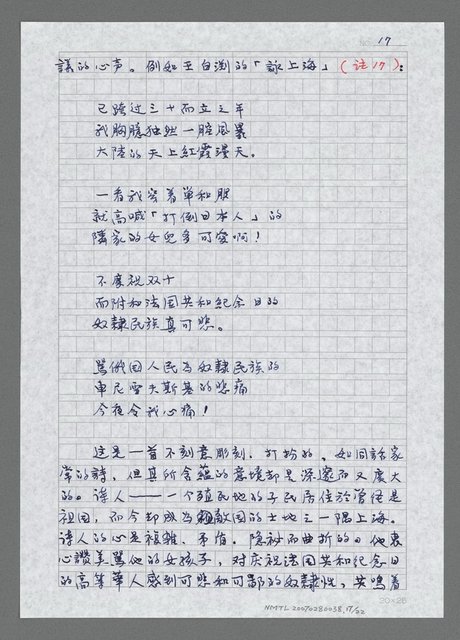 17
議的心声。例如王白渊的「詠上海」(註17):
已踏过三十而立之年
我胸膛独然一腔風暴
大陸的天上紅霞漫天。
一看我穿着単和服
就高喊「打倒日本人」的
隣家的女兒多可愛啊!
不慶祝双十
而附和法国共和紀念日的
奴隸民族真可悲。
罵俄国人民為奴隸民族的
車尼雪夫斯基的悲痛
今夜令我心痛!
這是一首不刻意彫刻、打扮的,如同話家
常的詩,但其所含蘊的意境却是深邃而又廣大
的。詩人——一个殖民地的子民居住於曾经是
祖国,而今却成為敵国的土地之一隅上海。
詩人的心是複雜、矛盾、隐秘而曲折的。他衷
心讚美罵他的女孩子,对庆祝法国共和纪念日
的高等華人感到可悲和可鄙的奴隸性,共鳴着
NMTL20070280038,17/22
20×25